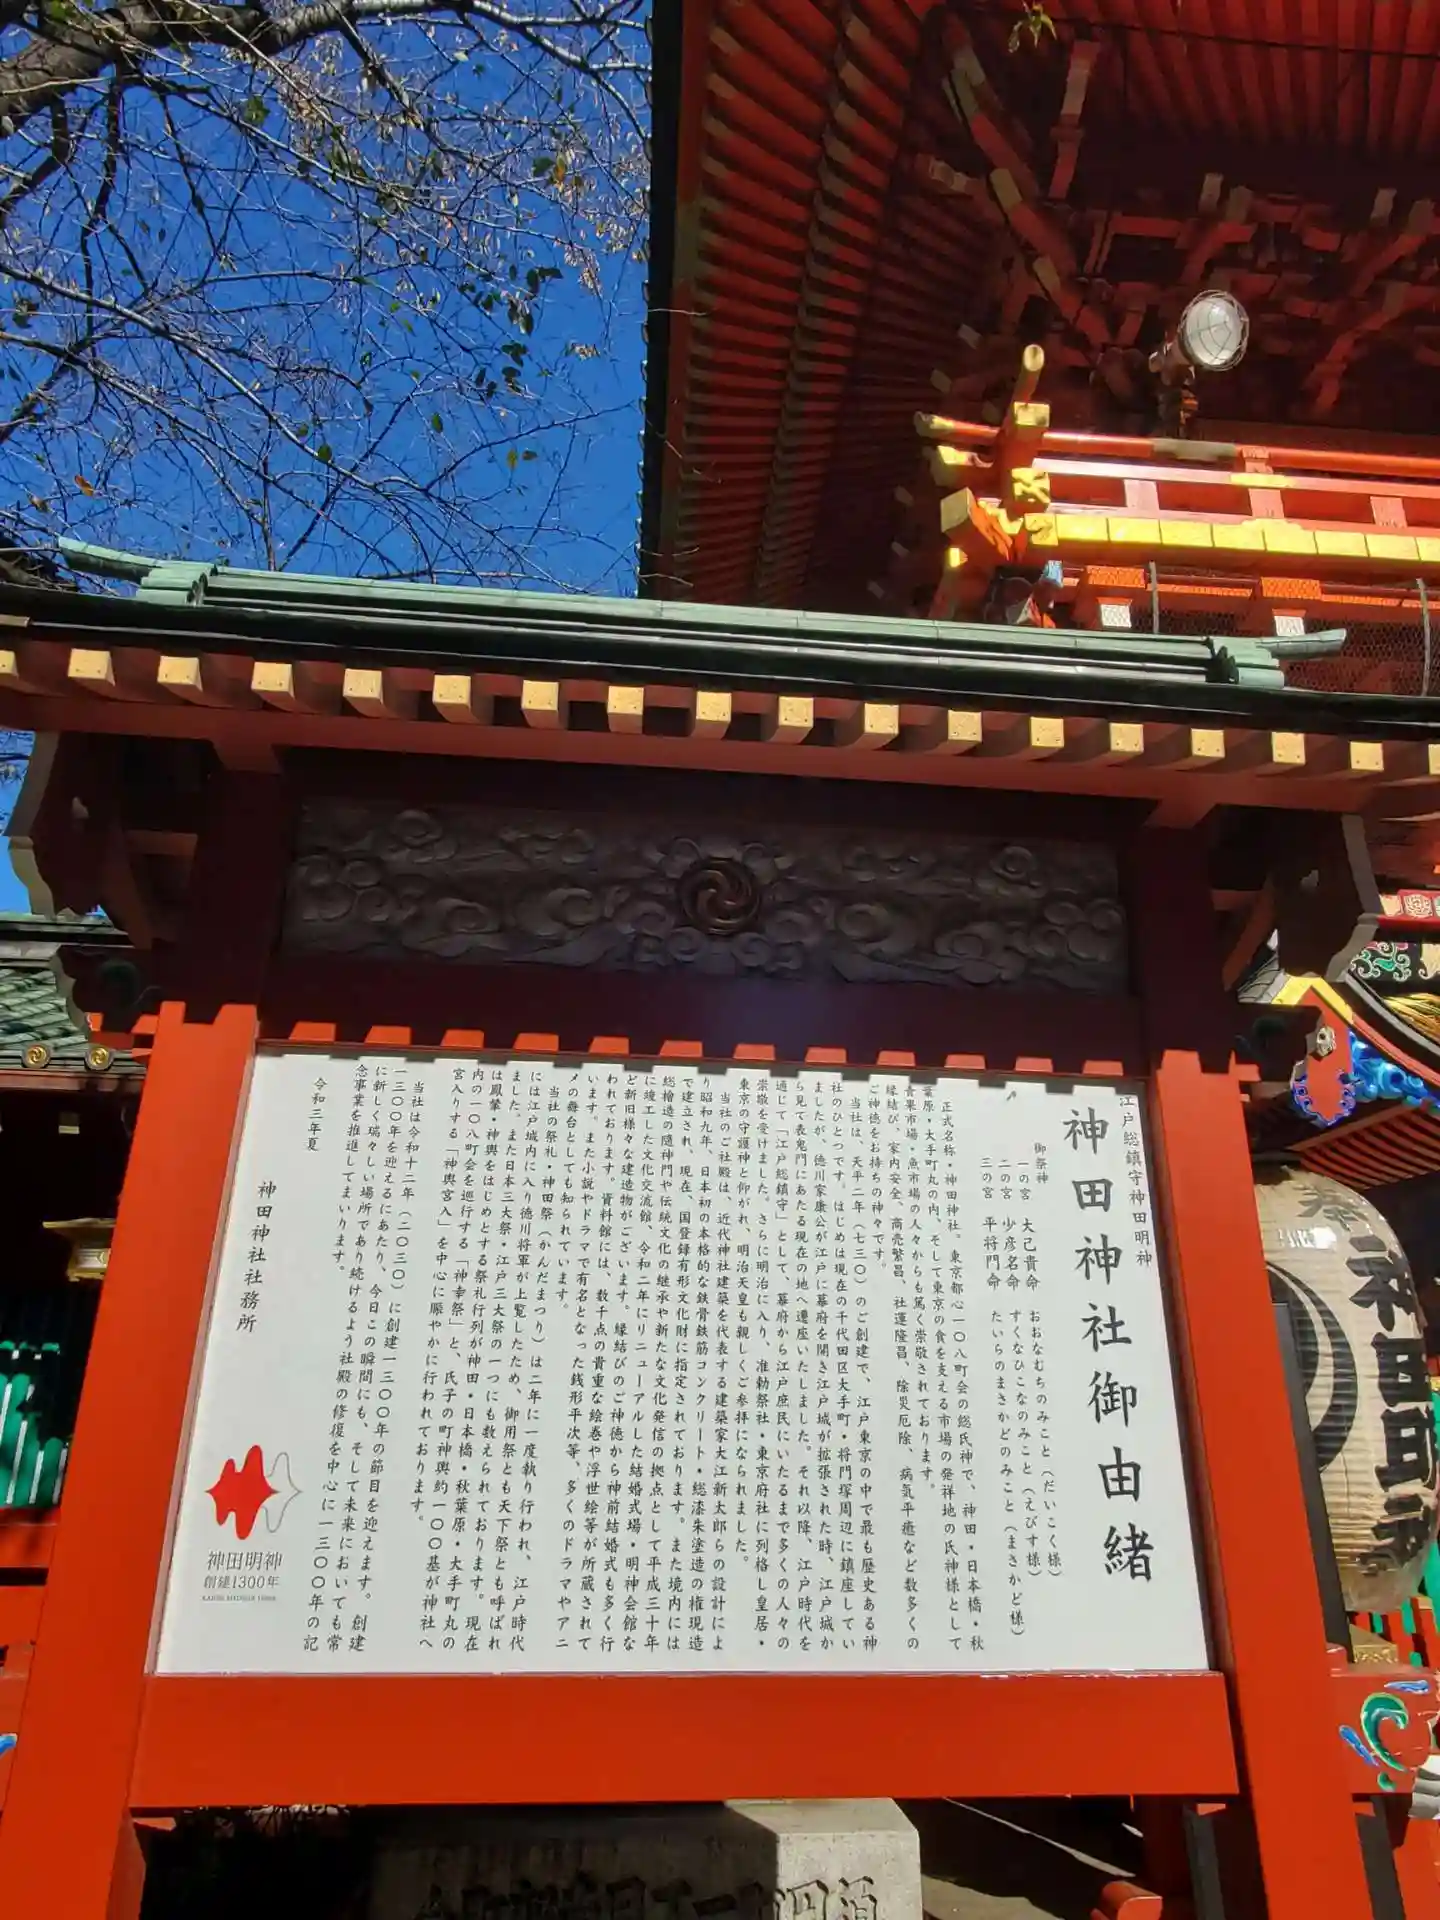 江戸総鎮守神田明神
神田神社御由緒
御祭神
一の宮 大己貴命 おおなむちのみこと（だいこく様）
二の宮 少彦名命 すくなひこなのみこと（えびす様）
三の宮 平将門命 たいらのまさかどのみこと（まさかど様）
正式名称・神田神社。東京都心一〇八町会の総氏神で、神田・日本橋・秋
葉原・大手町丸の内、そして東京の食を支える市場の発祥地の氏神様として
青果市場・魚市場の人々からも篤く崇敬されております。
縁結び、家内安全、商売繁昌、社運隆昌、除災厄除、病気平癒など数多くの
ご神徳をお持ちの神々です。
当社は、天平二年（七三〇）のご創建で、江戸東京の中で最も歴史ある神
社のひとつです。はじめは現在の千代田区大手町・将門塚周辺に鎮座してい
ましたが、徳川家康公が江戸に幕府を開き江戸城が拡張された時、江戸城か
ら見て表鬼門にあたる現在の地へ遷座いたしました。それ以降、江戸時代を
通じて「江戸総鎮守」として、幕府から江戸庶民にいたるまで多くの人々の
崇敬を受けました。さらに明治に入り、准勅祭社・東京府社に列格し皇居・
東京の守護神と仰がれ、明治天皇も親しくご参拝になられました。
当社のご社殿は、近代神社建築を代表する建築家大江新太郎らの設計によ
り昭和九年、日本初の本格的な鉄骨鉄筋コンクリート・総漆朱塗造の権現造
で建立され、現在、国登録有形文化財に指定されております。また境内には
総檜造の隨神門や伝統文化の継承や新たな文化発信の拠点として平成三十年
に竣工した文化交流館、令和二年にリニューアルした結婚式場・明神会館な
ど新旧様々な建造物がございます。縁結びのご神徳から神前結婚式も多く行
われております。資料館には、数千点の貴重な絵巻や浮世絵等が所蔵されて
います。また小説やドラマで有名となった銭形平次等、多くのドラマやアニ
メの舞台としても知られています。
当社の祭礼・神田祭（かんだまつり）は二年に一度執り行われ、江戸時代
には江戸城内に入り徳川将軍が上覧したため、御用祭とも天下祭とも呼ばれ
ました。また日本三大祭・江戸三大祭の一つにも数えられております。現在
は鳳輦・神輿をはじめとする祭礼行列が神田・日本橋・秋葉原・大手町丸の
内の一〇八町会を巡行する「神幸祭」と、氏子の町神輿約一〇〇基が神社へ
宮入りする「神輿宮入」を中心に賑やかに行われております。
当社は令和十二年（二〇三〇）に創建一三〇〇年の節目を迎えます。創建
一三〇〇年を迎えるにあたり、今日この瞬間にも、そして未来においても常
に新しく瑞々しい場所であり続けるよう社殿の修復を中心に一三〇〇年の記
念事業を推進してまいります。
令和三年夏
神田神社社務所
神田明神
創建1300年